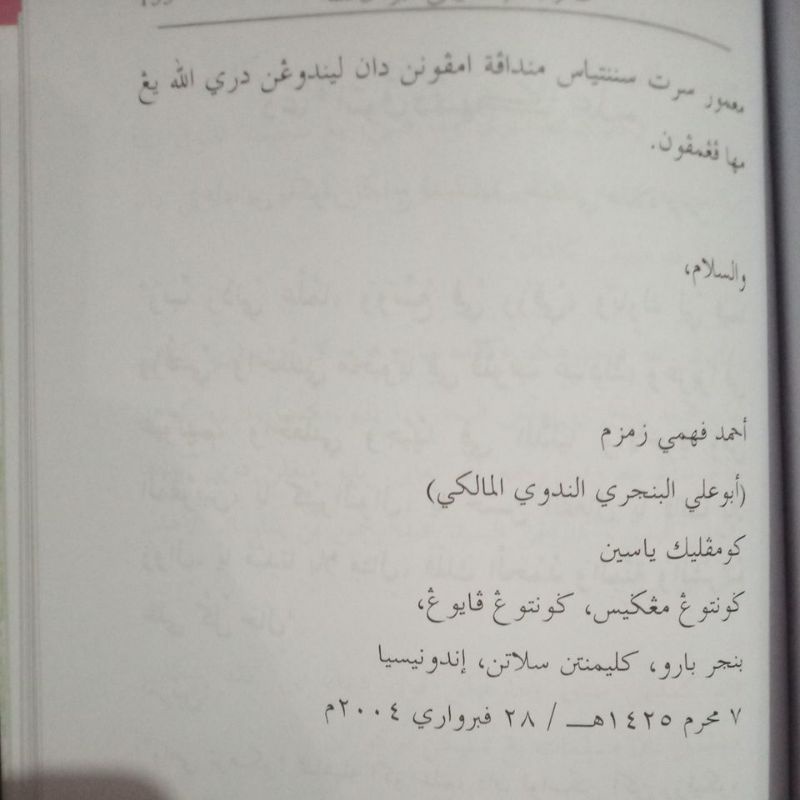 معمور سرت سننتياس منداڤة امڤونن دان ليندوڠن دري الله يڠ
مها ڤڠمڤون.
والسلام،
أحمد فهمي زمزم
(أبوعلي البنجري الندوي المالكي)
كومڤليك ياسين
ݢونتوڠ مڠݢيس، ݢونتوڠ ڤايوڠ،
بنجر بارو، كليمنتن سلاتن، إندونيسيا
٧ محرم ١٤٢٥هـ / ٢٨ فبرواري ٢٠٠٤م